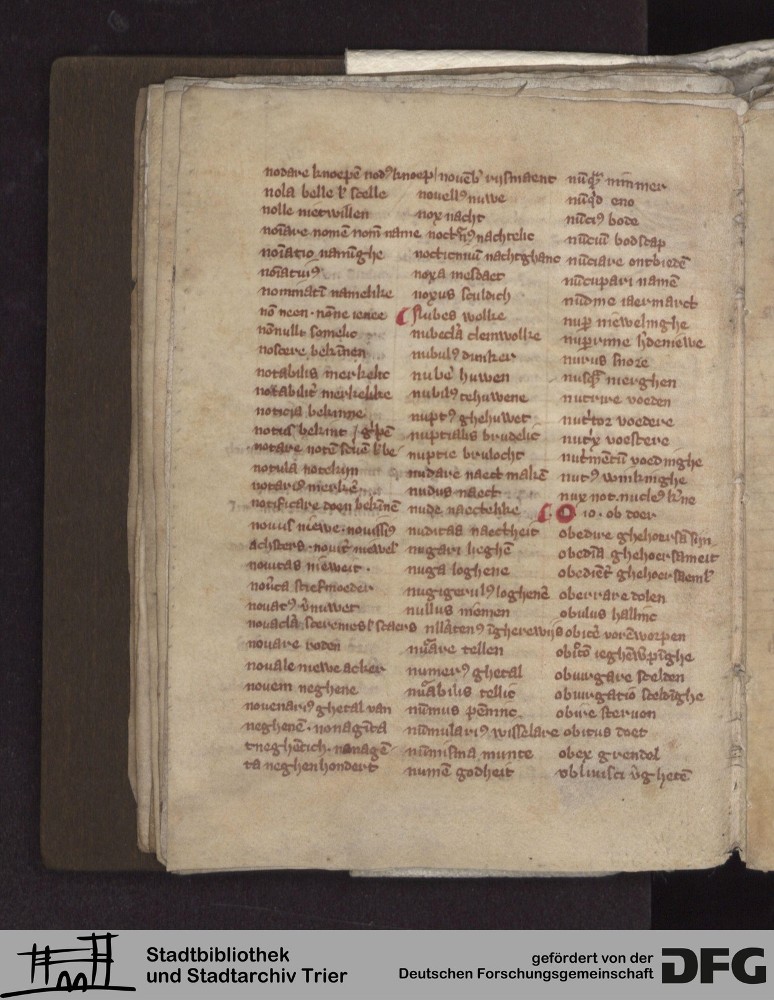 nodare knoepē nodꝰ knoep
nola belle ł scelle
nolle nietwillen
noīare nomē nom̄ name
noīatio namīghe
noīatiuꝰ
nominatī namelike
nō neen · nōne ienee
nōnulli somelic
noscere bekīnen
notabilis merkelic
notabilit̄ merkelike
noticia bekinne
notus bekint
notula notekijn
notariꝰ
notificare doen bekīnē
nouus niewe · nouissiꝰ
achsters · nouit̄ niewel
nouitas nieweit ·
noūca stiefmoeder
nouare roden
nouale niewe acker
nouem neghene
nouenariꝰ ghetal van
neghenē · nonagīta
tneghētich · nonagē
ta neghenhondert
nouēb̄ rijsmaent
nouellꝰ nuwe
nox nacht
noctˀnꝰ nachtelic
nocticiniū nachtghanc
noxa mesdaet
noxius sculdich
Nubes wolke
nubecla cleinwolke
nubilꝰ dunker
nube̅ huwen
nubilꝰ tehuwene
nuptꝰ ghehuwet
nuptialis brudelic
nuptie brulocht
nudare naect makē
nudus naect
nude naectelike
nuditas naectheit
nugari lieghē
nuga loghene
nugigerulꝰ loghenē
nullus niemen
nu̅are tellen
numerꝰ ghetal
nu̅abilis tellic
nūmus pēninc
nūmulariꝰ wisselare
nūmisma munte
numē godheit
nūqᷓ nimmer
nūqd eno
nūciꝰ bode
nūciū bodscap
nūciare ontbiedē
nūcupari namē
nūdine iaermarct
nup̄ niewelinghe
nurus snore
nusqᷓ nierghen
nutrire voeden
nut̄tor voedere
nut̄x voestere
nut̄mētū voedinghe
nutꝰ winkinghe
nux not · nucleꝰ k̄ne
O io · ob doer
obedire ghehoersā sijn
obedīa ghehoersameit
obediēt̄ ghehoersaeml̄
oberrare dolen
obulus hallinc
obicē vorēworpen
obiurgare scelden
obiurgatio sceldīghe
obire steruen
obitus doet
obex grendel
obliuisci v̄ghetē
Stadtbibliothek
und Stadtarchiv Trier
gefördert von der
Deutschen Forschungsgemeinschaft
DFG